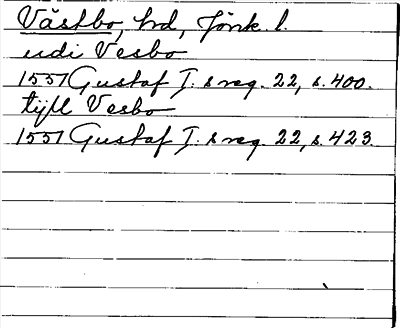 Västbo, hd, Jönk. l.
udi Vesbo
1557 Gustaf I:s reg. 22, s. 400.
tijll Vesbo
1557 Gustaf I:s reg. 22, s. 423.